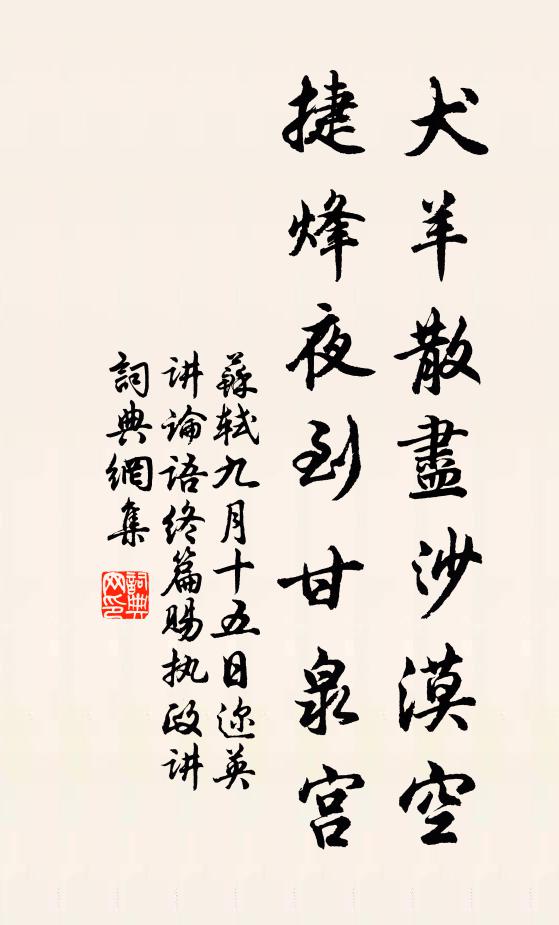 犬羊散盡沙漠空
捷烽夜到甘泉宮
蘇軾九月十五日迩英
讲論语终篇赐执政讲
詞典網集
詞典网印